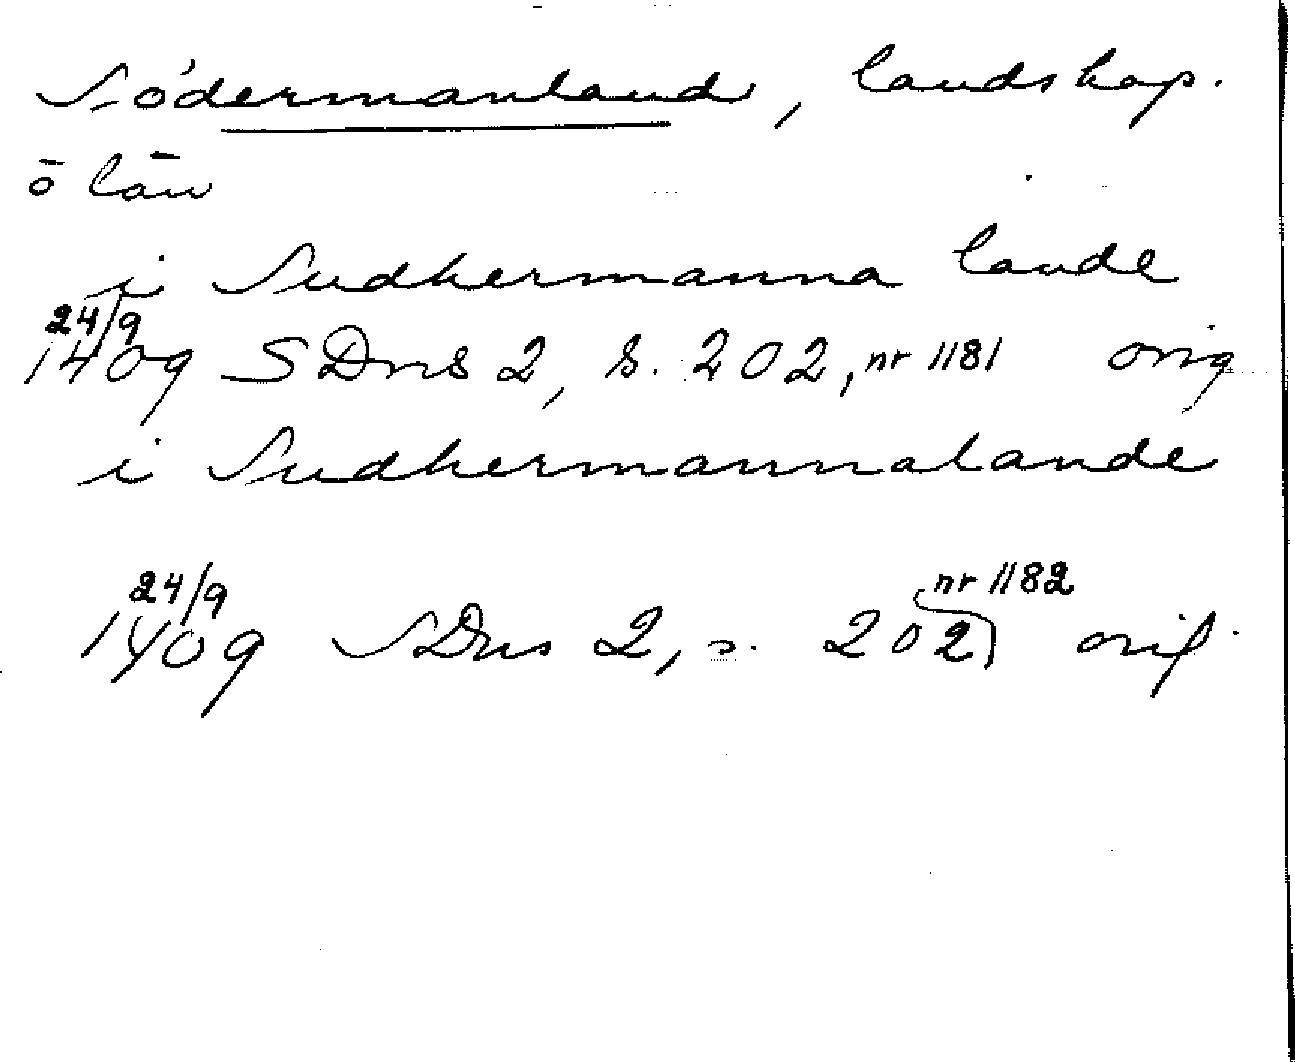 Södermanland, landskap.
ö län
i Sudhermanna lande
24/9
1409 SDns 2, s. 202, nr 1181 orig
i Sudhermannalande
24/9 nr 1182
1409 SDns 2, s. 202, orig.